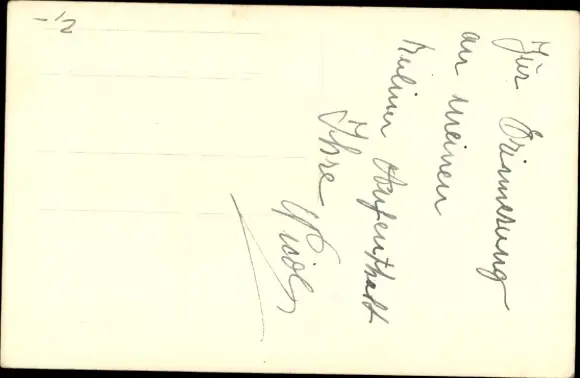 Zur Erinnerung
an meinen
Berliner Aufenthalt
Ihre
-½